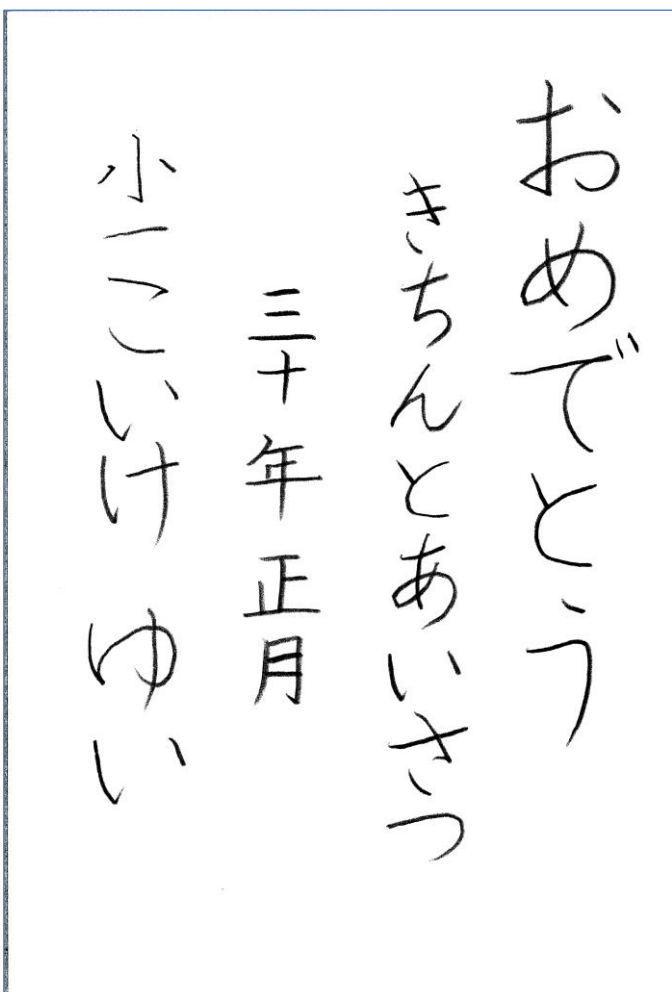 おめでとう
きちんとあいさつ
三十年正月
小一こいけ ゆい